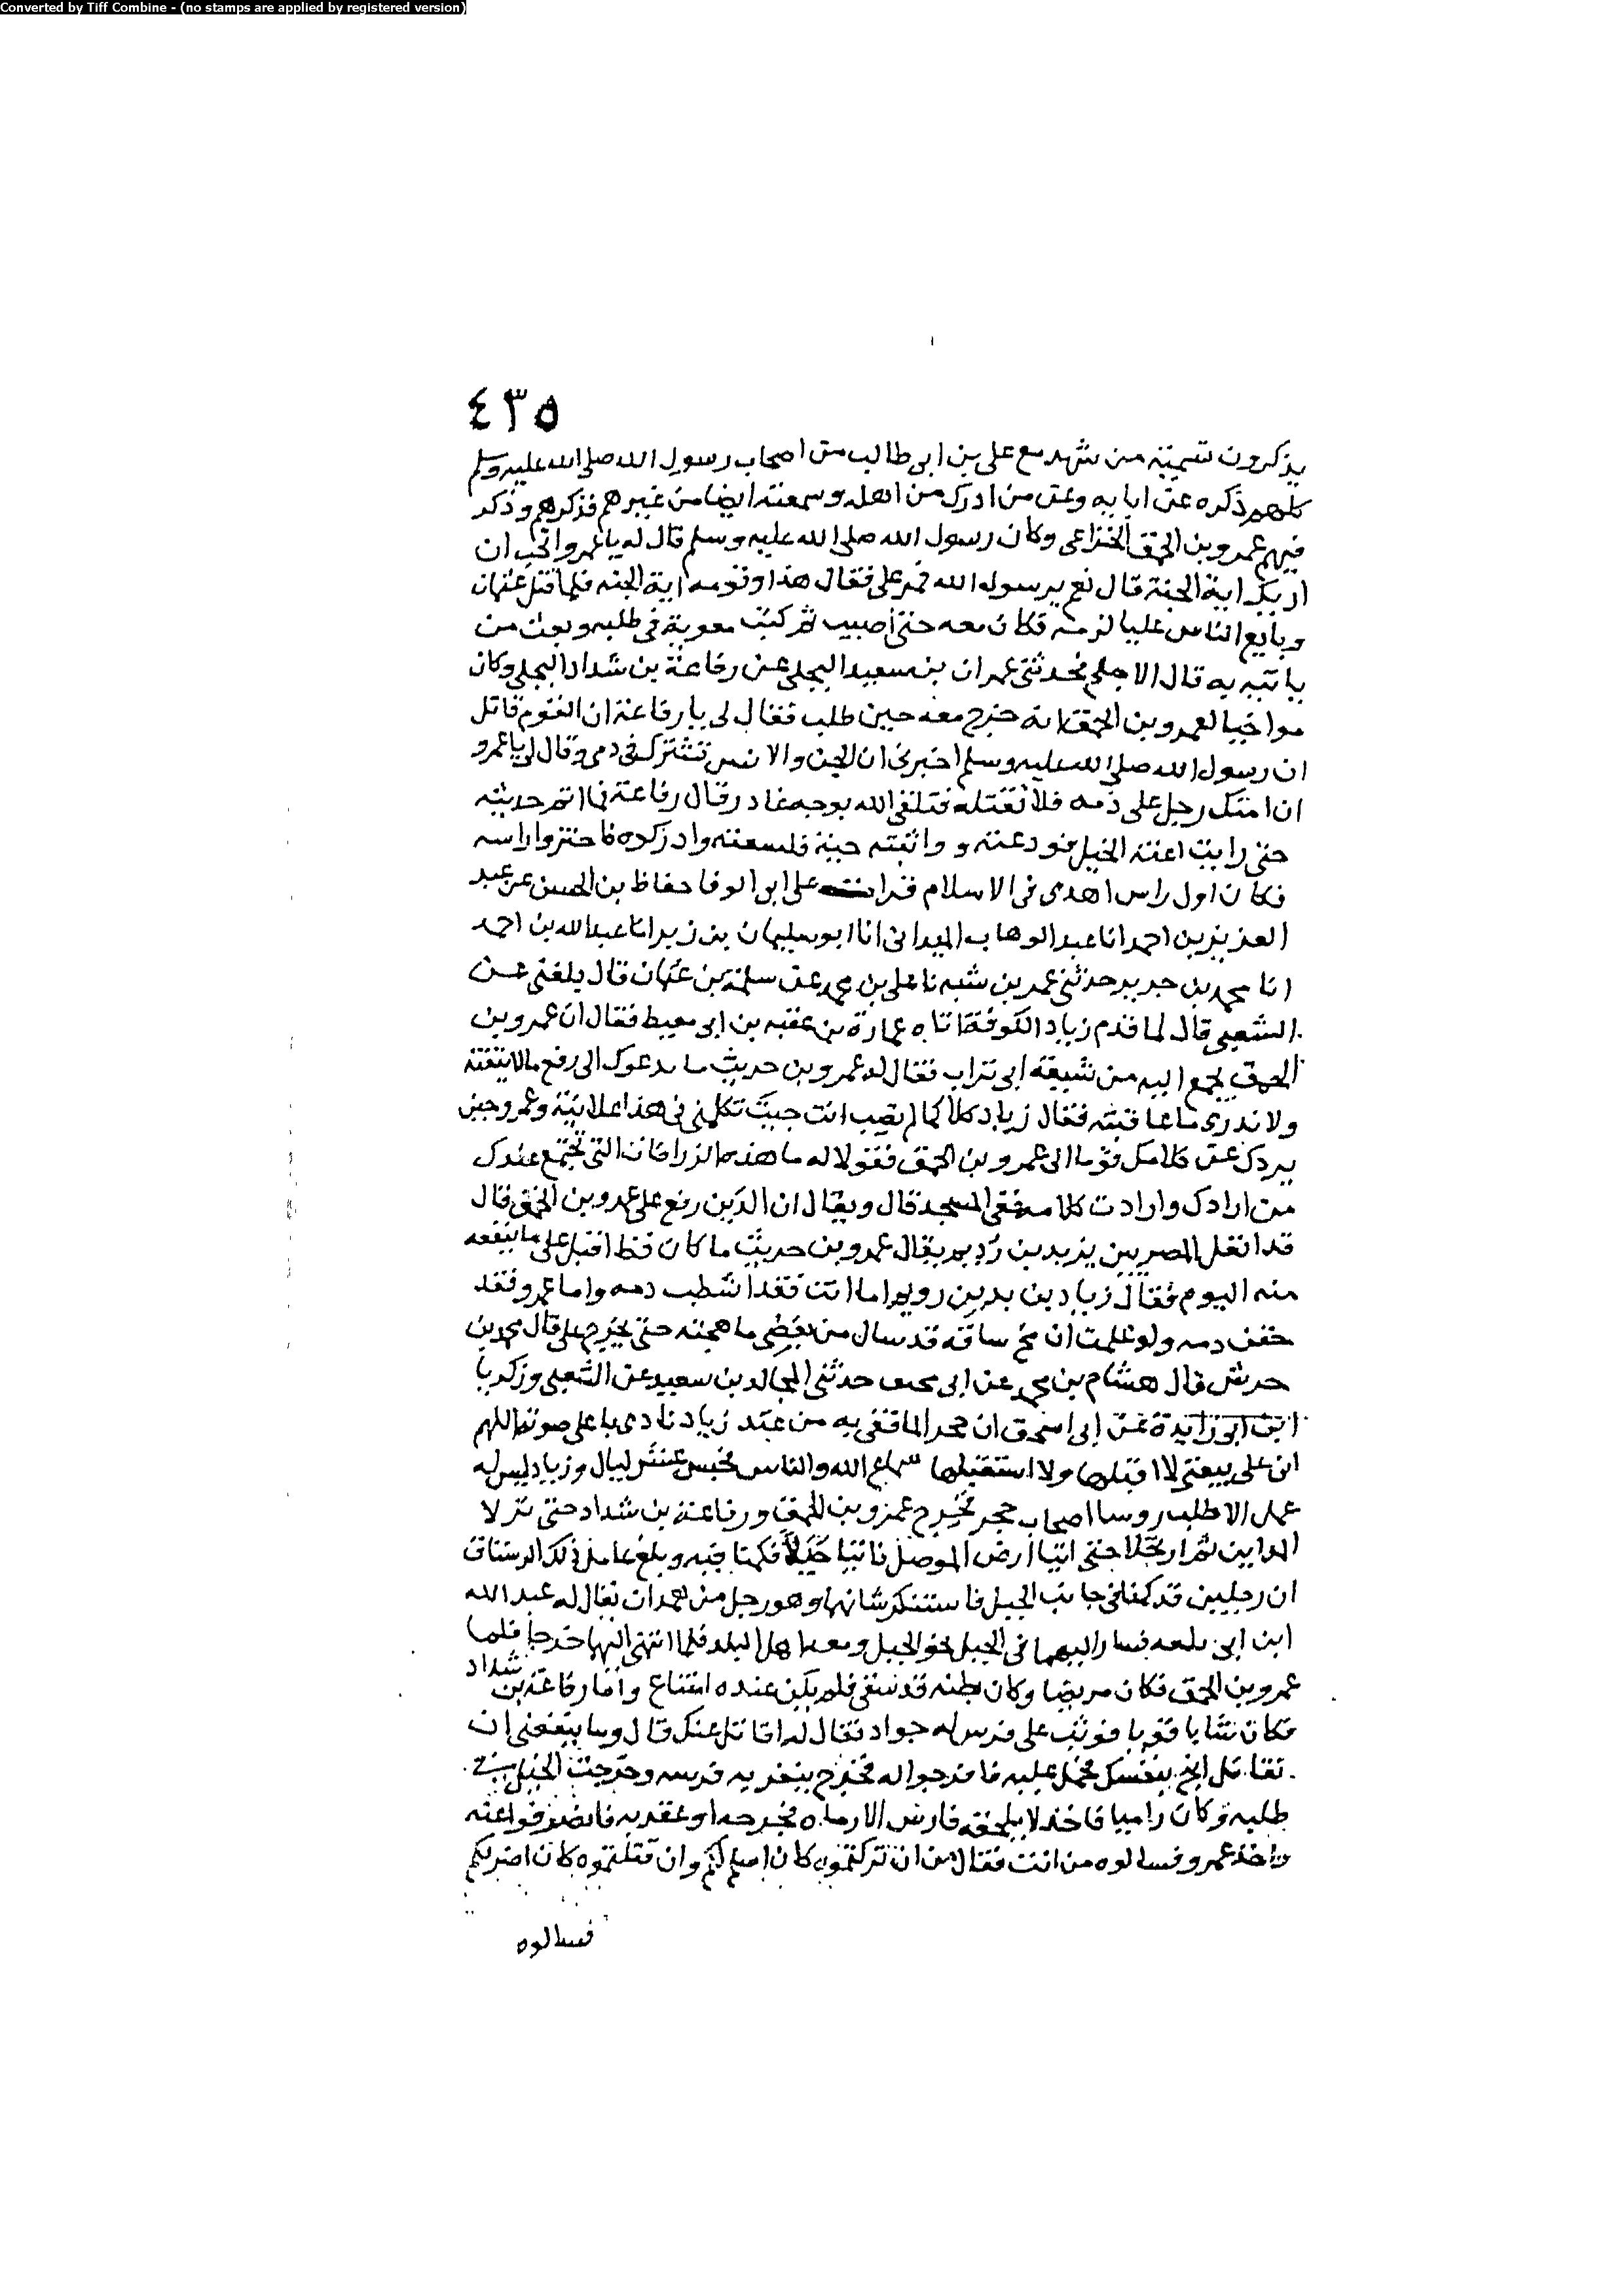 Converted by Tiff Combine - (no stamps are applied by registered version)
٤٣٥
يذكرون تسمية من شهد مع على بن ابى طالب من اصحاب رسول الله صلى الله عليه وسلم
كلهم ذكره عن ابايه وعن من ادرك من اهله وسمعته ايضا من غيرهم فذكرهم وذكر
فيهم عمرو بن الحمق الخزاعى وكان رسول الله صلى الله عليه وسلم قال له يا عمرو اتحب ان
اريك اية الجنة قال نعم يرسول الله فمر على فقال هذا وقومه اية الجنه فلما قتل عثمان
وبايع الناس عليا لزمه فكان معه حتى أصيب ثم كتب معوية فى طلبه وبعث من
ياتيه به قال الاجلح فحدثنى عمران بن سعيد البجلى عن رفاعة بن شداد البجلى وكان
مواخيا لعمرو بن الحمق انه خرج معه حين طلب فقال لى يا رفاعة ان القوم قاتلى
ان رسول الله صلى الله عليه وسلم اخبرنى ان الجن والانس تشترك فى دمى وقال لى يا عمرو
ان امنك رجل على دمه فلا تقتله فتلقى الله بوجه غادر قال رفاعة فما اتم حديثه
حتى رايت اعنة الخيل فودعته و واثبته حية فلسعته وادركوه فاحتزوا راسه
فكان اول راس اهدى فى الاسلام قرات على ابى الوفا حفاظ بن الحسن عن عبد
العزيز بن احمد انا عبد الوهاب الميدانى انا ابو سليمان بن زبر انا عبد الله بن احمد
انا محمد بن جرير حدثنى عمر بن شبه نا على بن محمد عن سلمة بن عثمان قال بلغنى عن
الشعبى قال لما قدم زياد الكوفة اتاه عمارة بن عقبه بن ابى معيط فقال ان عمرو بن
الحمق يجمع اليه من شيعة ابى تراب فقال له عمرو بن حريث ما يدعوك الى رفع مالا تيقنه
ولا ندرى ما عاقبته فقال زياد كلا كما لم يصب انت حيث تكلمنى فى هذا علانية وعمرو حين
يردك عن كلامك قوما الى عمرو بن الحمق فقولا له ما هذه الزرافات التى تجتمع عندك
من ارادك وارادت كلامه ففى المسجد قال ويقال ان الذين رفع على عمرو بن الحمق قال
قد انغل المصرين يزيد بن رويم فقال عمرو بن حريث ما كان قط اقبل على ما ينفعه
منه اليوم فقال زياد بن يزيد بن رويم اما انت فقد اشطب دمه واما عمرو فقد
حقن دمه ولو علمت ان مخ ساقه قد سال من بغضى ما هجته حتى يخرج على قال محمد بن
جرير قال هشام بن محمد عن ابى مخنف حدثنى المجالد بن سعيد عن الشعبى وزكريا
ابن ابى زايدة عن ابى اسحق ان حجر الما قفى به من عند زياد نادى باعلى صوته اللهم
انى على بيعتى لا اقيلها ولا استقيلها سماع الله والناس فحبس عشر ليال وزياد ليس له
عمل الا طلب روسا اصحاب حجر فخرج عمرو بن الحمق ورفاعة بن شداد حتى نزلا
المداين ثم ارتحلا حتى اتيا ارض الموصل فاتيا جبلا فكمنا فيه وبلغ عامل ذلك الرستاق
ان رجلين قد كمنا فى جانب الجبل فاستنكر شانهما وهو رجل من همدان يقال له عبد الله
ابن ابى بلعه فسار اليهما فى الخيل نحو الجبل ومعه اهل البلد فلما انتهى اليهما خرجا فاما
عمرو بن الحمق فكان مريضا وكان بطنه قد سقى فلم يكن عنده امتناع واما رفاعة بن شداد
فكان شابا قويا فوثب على فرس له جواد فقال له اقاتل عنك قال وما ينفعنى ان
تقاتل انج بنفسك فحمل عليه فافرجوا له فخرج ينفر به فرسه وخرجت الخيل فى
طلبه وكان راميا فاخذ لا يلحقه فارس الا رماه فجرحه او عقر به فانصرفوا عنه
واخذ عمرو فسالوه من انت فقال من ان تركتموه كان اسلم لكم وان قتلتموه كان اضر بكم
فسالوه